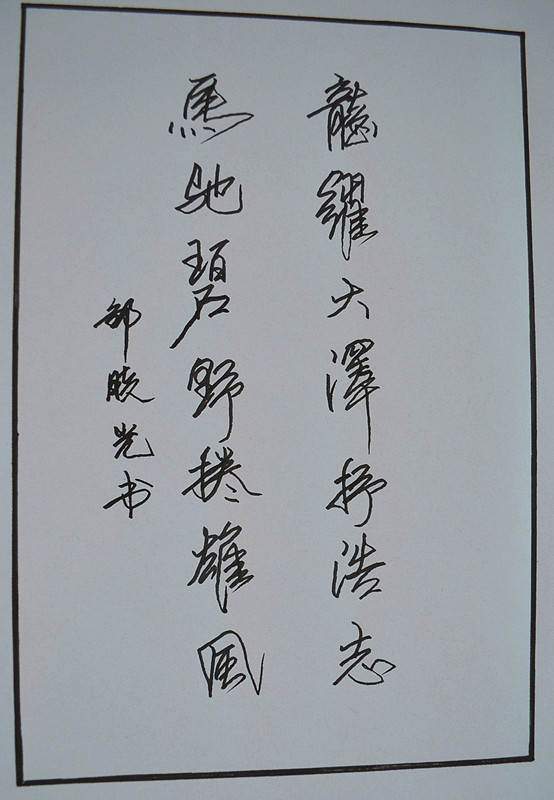 龍躍大澤抒浩志
馬馳碧野捲雄風
邹晓光书